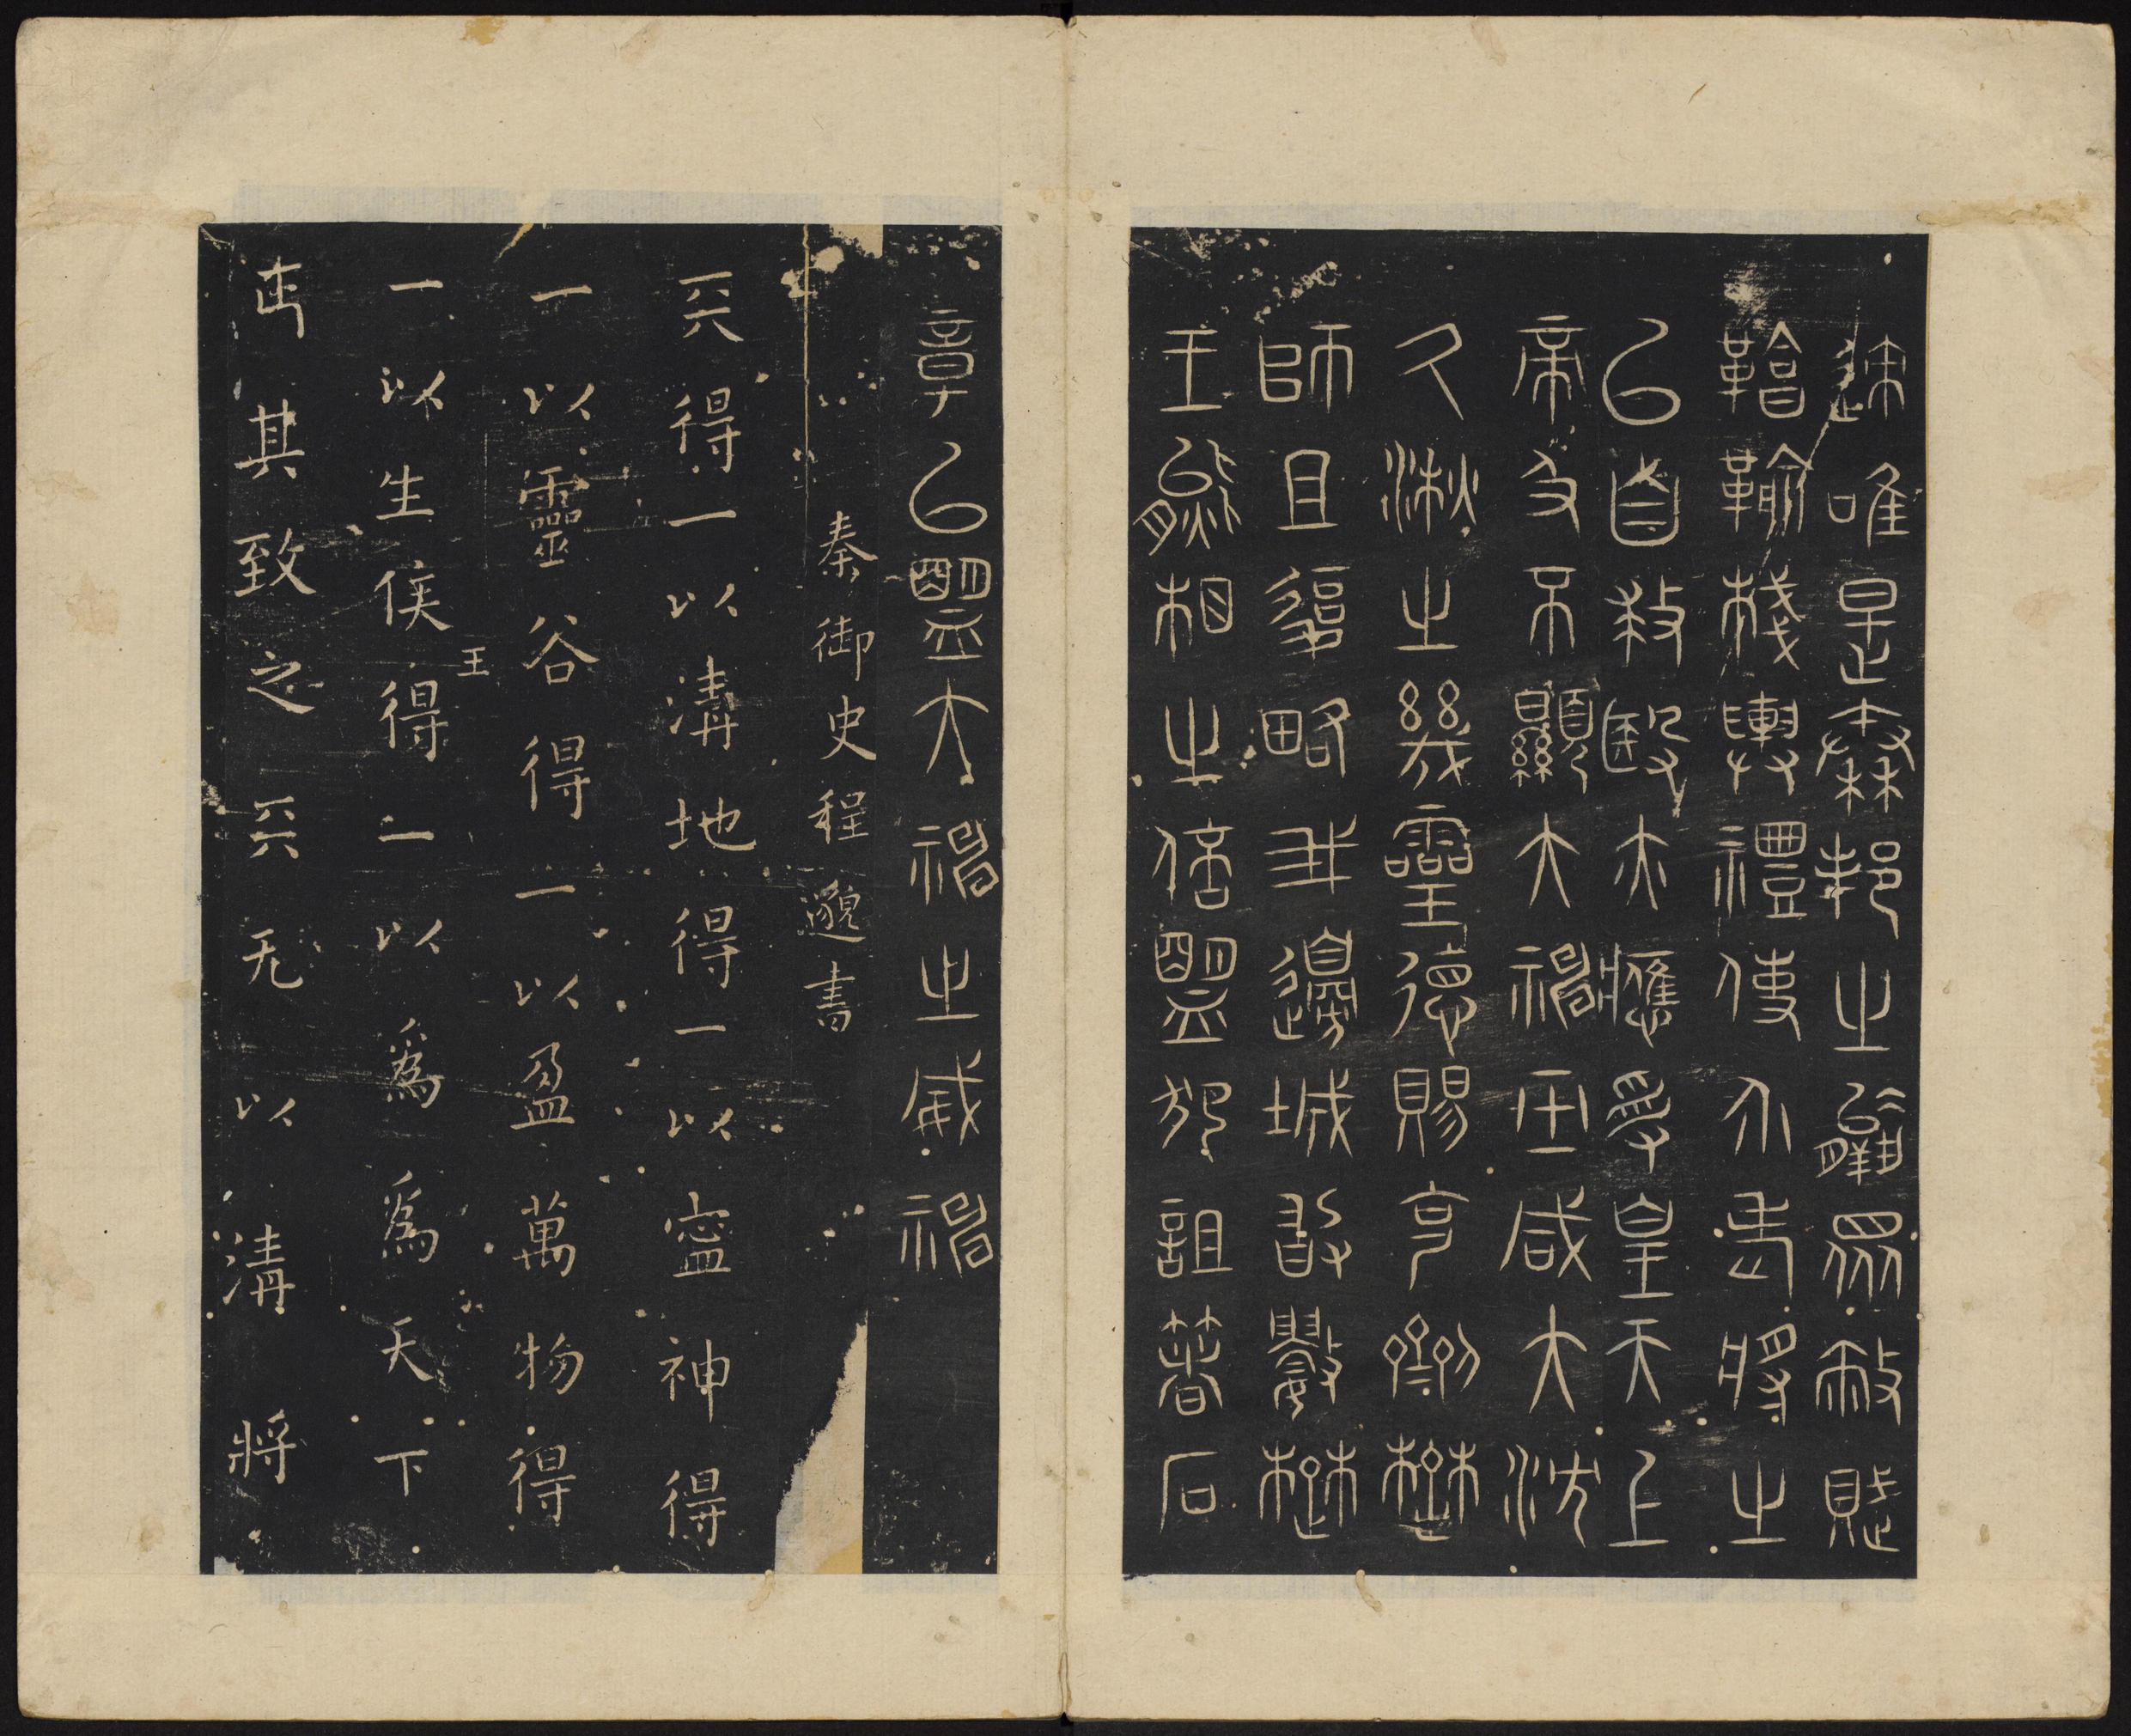 逑唯是秦邦之羸眾敝賦
鞈䩱棧輿禮使介老將之
以自救殹亦應受皇天上
帝及不顯大神巫咸大沈
久湫之幾靈德賜克劑楚
師且復略我邊城敢數楚
王熊相之倍盟犯詛著石
章以盟大神之威神
秦御史程邈書
天得一以清地得一以寧神得
一以靈谷得一以盈萬物得
一以生侯王得一以為為天下
正其致之天无以清將